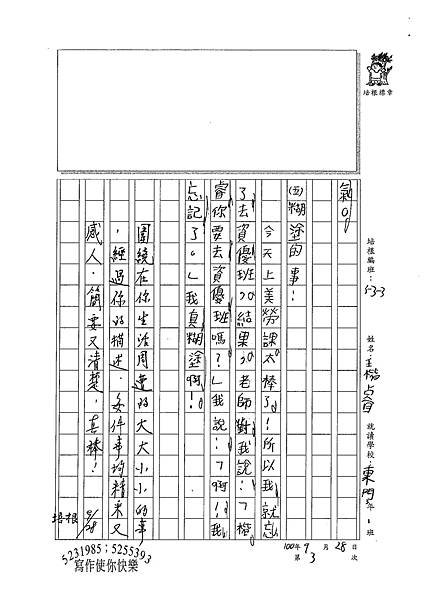 氣。
(五)糊塗的事:
今天上美勞課太棒了!所以我就忘
了去資優班。結果,老師對我說:「楷
睿你要去資優班嗎?」我說:「啊!我
忘記了。」我真糊塗啊!
圍繞在你生活周遭的大大小小的事
,經過你的描述,每件事均精采又
感人,簡要又清楚,真棒!
培根 9/28
培根標章
培根編班:5-3-3
姓名:王楷睿
就讀學校:東門 年 1 班
100年9月28日
第3次
5231985;5255393
寫作使你快樂